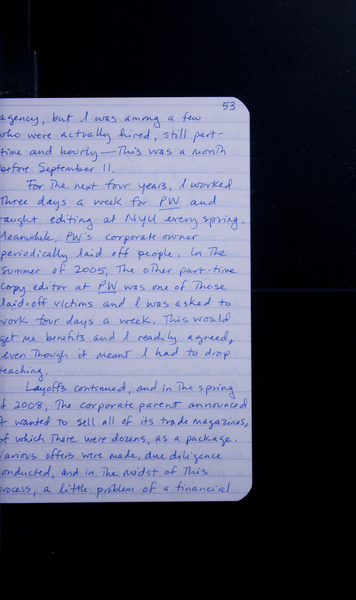 53
agency, but I was among a few
who were actually hired, still part-
time and hourly—This was a month
before September 11.
For the next four years, I worked
three days a week for PW and
taught editing at NYU every spring.
Meanwhile, PW's corporate owner
periodically laid off people. In the
summer of 2005, the other part-time
copy editor at PW was one of those
laid-off victims and I was asked to
work four days a week. This would
get me benefits and I readily agreed,
even though it meant I had to drop
teaching.
Layoffs continued, and in the spring
of 2008, the corporate parent announced
it wanted to sell all of its trade magazines,
of which there were dozens, as a package.
Various offers were made, due diligence
conducted, and in the midst of this
process, a little problem of a financial